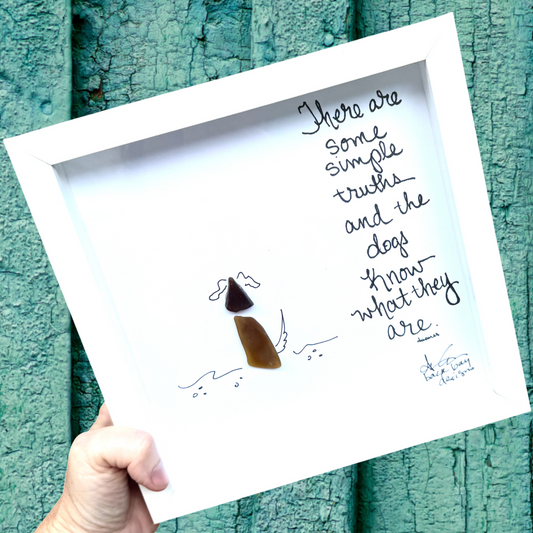 There are
some
simple
truths
and the
dogs
know
what they
are.
back bay
designs